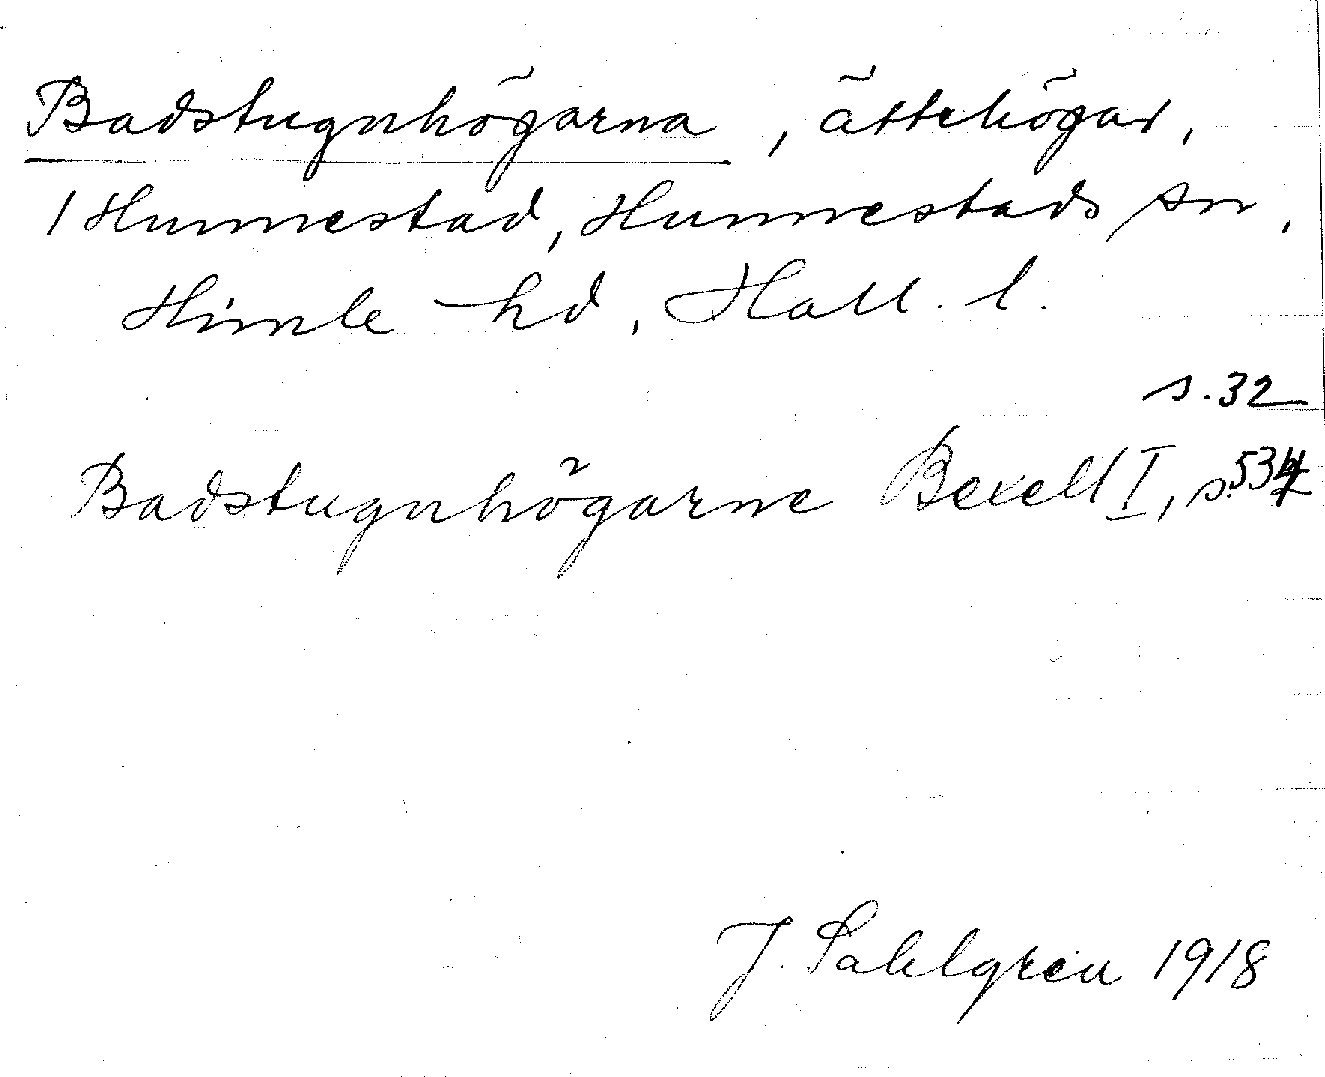 Badstugnhögarna, ättehögar,
/ Hunnestad, Hunnestads sn,
Himle hd, Hall. l.
s. 32
Badstugnhögarne Bexell I, s.
J. Sahlgren 1918